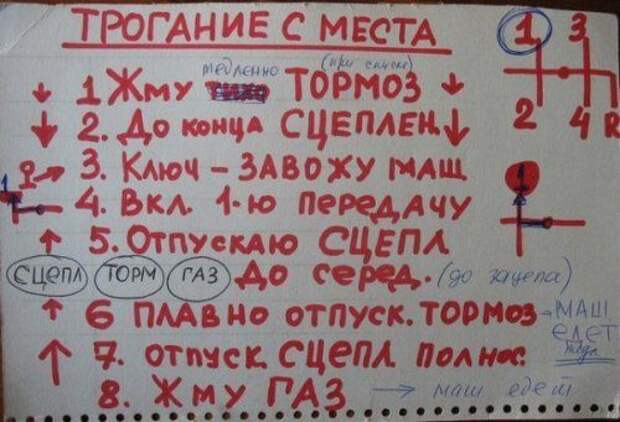 ТРОГАНИЕ С МЕСТА
медленно (при спуске)
1 Жму тихо ТОРМОЗ
2. До конца СЦЕПЛЕН.
3. Ключ – ЗАВОЖУ МАШ
4. ВКЛ. 1-Ю ПЕРЕДАЧУ
5. ОТПУСКАЮ СЦЕПЛ
СЦЕПЛ ТОРМ ГАЗ До серед. (до зацепа)
6 ПЛАВНО ОТПУСК. ТОРМОЗ - МАШ
ЕДЕТ
7. ОТПУСК. СЦЕПЛ ПОЛНОС.
8. ЖМУ ГАЗ → маш едет
1 3
2 4 R
1
1